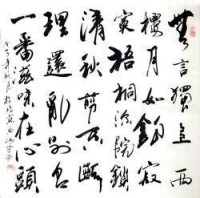 無言獨上西
樓月如鉤寂
寞梧桐深院鎖
清秋剪不斷
理還亂別是
一番滋味在心頭